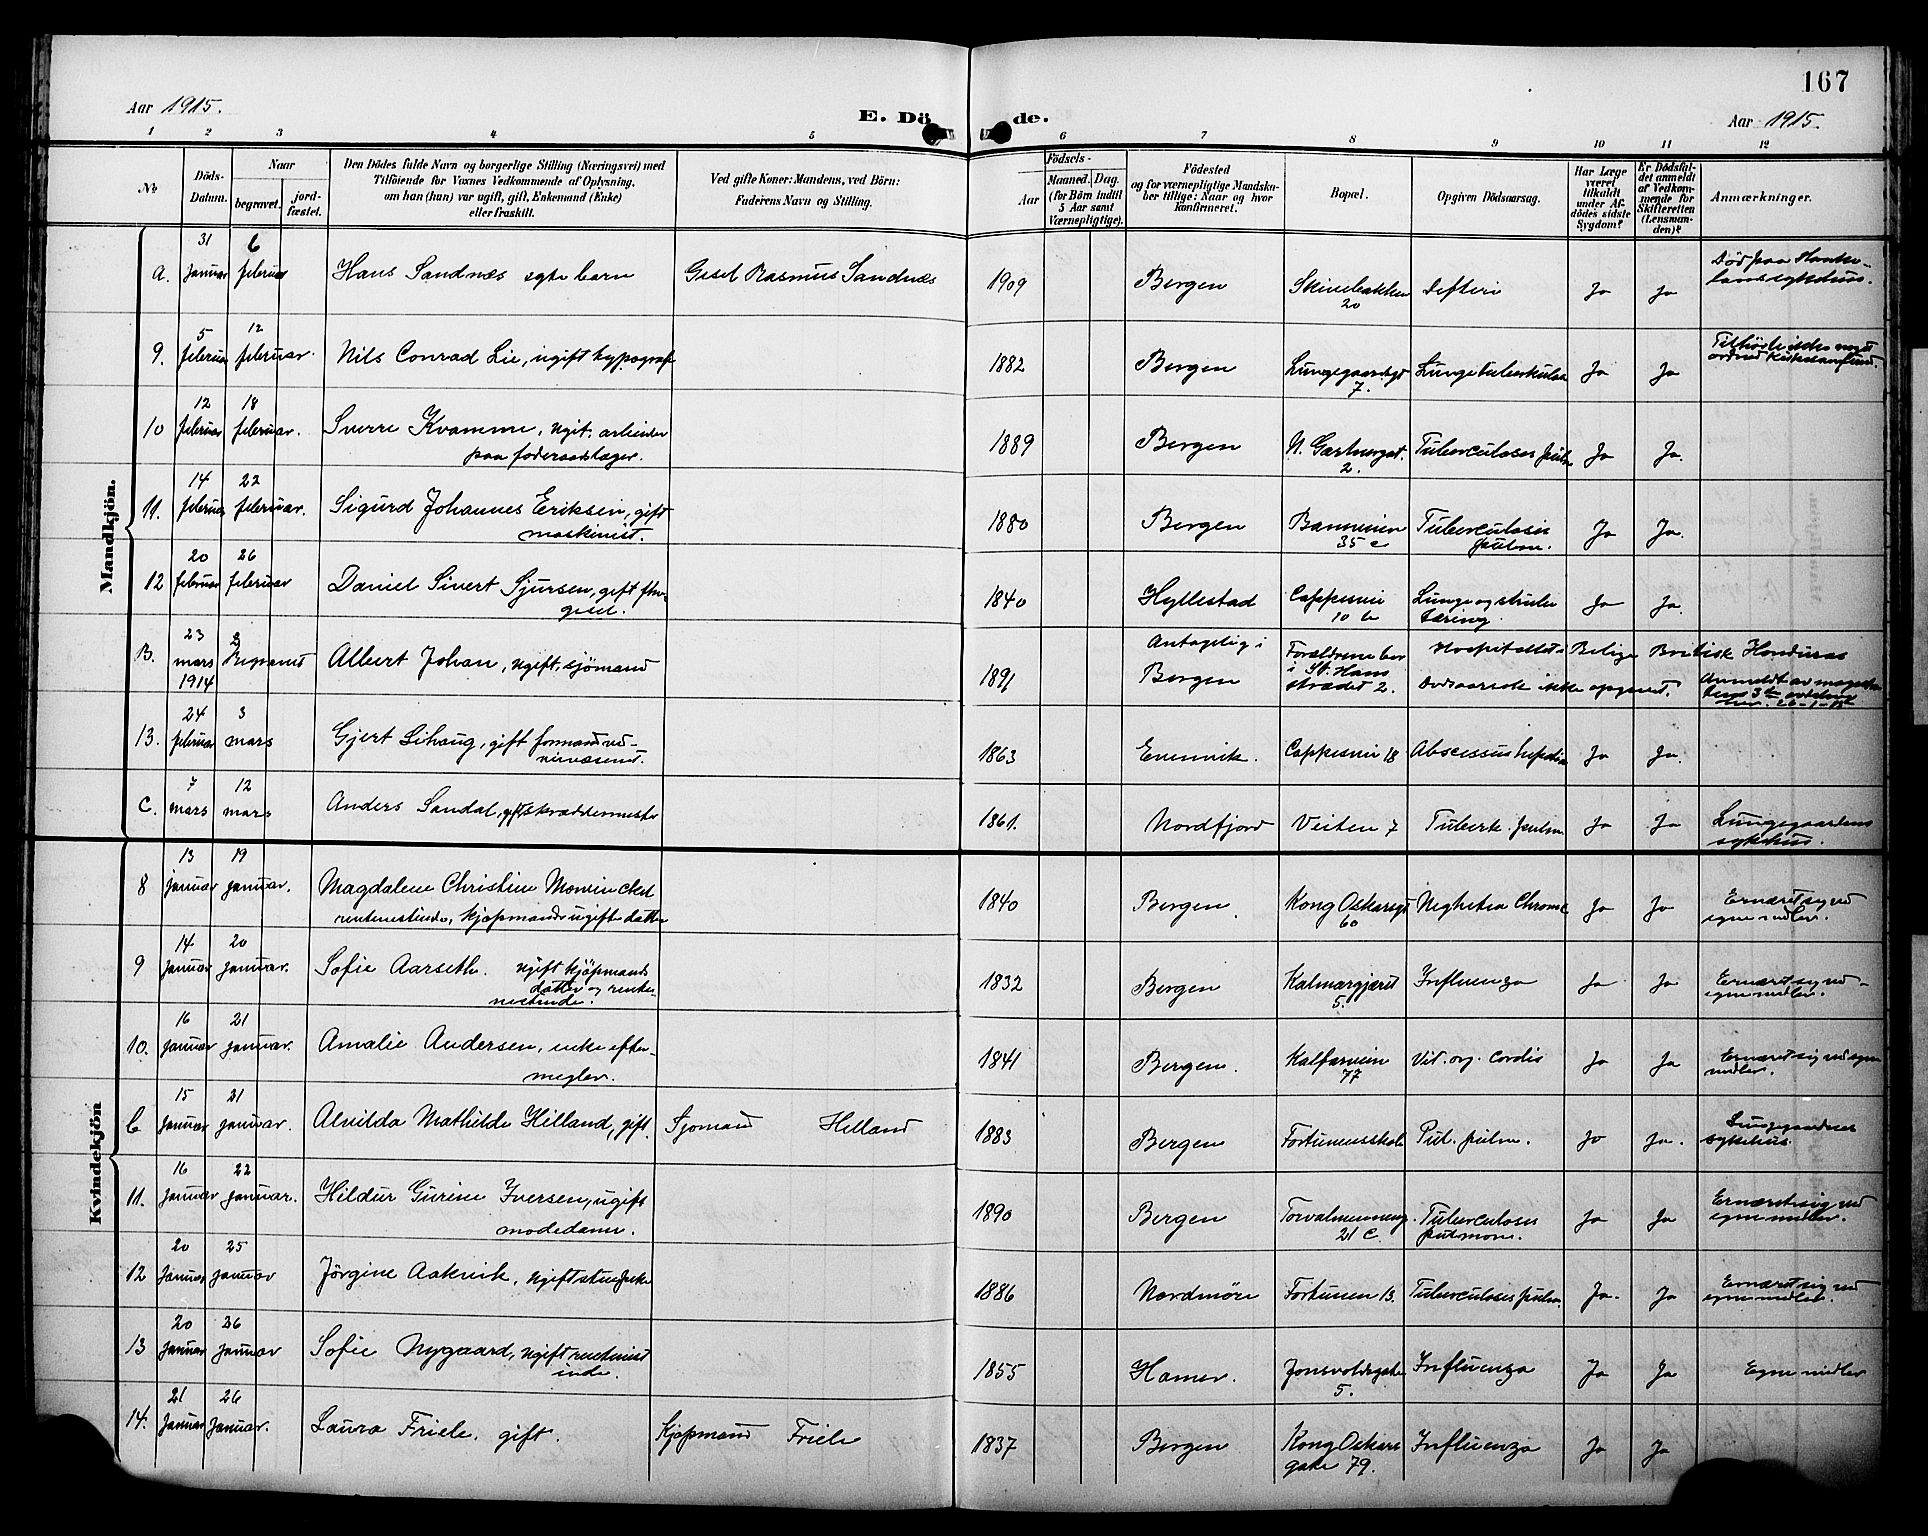 167
Aar 1915.
E. Döde.
Aar 1915.
1 2 3 4 5 6 7 8 9 10 11 12
No
Döds-Datum.
Naar
begravet.
jord-fæstet.
Den Dödes fulde Navn og borgerlige Stilling (Næringsvei) med
Tilföiende for Voxnes Vedkommende af Oplysning,
om han (hun) var ugift, gift, Enkemand (Enke)
eller fraskilt.
Ved gifte Koner: Mandens, ved Börn:
Faderens Navn og Stilling.
Födsels-
Aar
Maaned. Dag.
(for Börn indtil
5 Aar samt
Værnepligtige).
Födested
og for værnepligtige Mandska-
ber tillige: Naar og hvor
konfirmeret.
Bopæl.
Opgiven Dödsaarsag.
Har Læge
været
tilkaldt
under Af-
dödes sidste
Sygdom?
Er Dödsfal-
det anmeldt
af Vedkom-
mende for
Skifteretten
(Lensman-
den)?
Anmærkninger.
Mandkjön.
a. 31 januar 6 februar Hans Sandnæs egte barn Gesel Rasmus Sandnæs 1909 Bergen Skivebakken 20 Difteri Ja Ja Död paa Hauke-
landsykehus.
9. 5 februar 12 februar. Nils Conrad Lie, ugift typograf 1882 Bergen Lungegaardsgt 7. Lungetuberkulose Ja Ja Tilhörte ikke noget
ordnet Kirkesamfund.
10 12 februar 18 februar. Sverre Kvamme, ugift. arbeider
paa foderaadslager. 1889 Bergen N. Gartnergt. 2. Tuberculosis pulm Ja Ja.
11. 14 februar 22 februar. Sigurd Johannes Eriksen, gift
maskinist. 1880 Bergen 35 c Tuberculosis
pulm. Ja Ja.
12 20 februar 26 februar Daniel Sivert Sjursen, gift
gesel. 1840 Hyllestad Cappesvei
10 b Lunge og strube
tæring. Ja Ja.
B. 23 mars 1914 Begravet Albert Johan, ugift, sjömand 1891 Antagelig i
Bergen Forældrene bor
i St. Hans
strædet 2. Hospitalet i Belize Britisk Honduras
Dödsaarsak ikke opgivet. Anmeldt av magistra-
tens 3die avdeling
13. 24 februar 3 mars Gjert Lihaug, gift formand ved
veivæsenet. 1863 Evenvik. Cappesvei 18 Abscessus hepatis Ja Ja.
C. 7 mars 12 mars Anders Sandal, gift skræddermester 1861. Nordfjord Veiten 7 Tuberk. pulm Ja Ja Lungegaardens
sykehus.
Kvindekjön
8 13 januar 19 januar. Magdalene Christine Mowinckel
rentenistinde, kjøpmands ugifte datter 1840 Bergen. Kong Oskarsgt
60 Nephritis Chronic Ja Ja Ernæret sig ved
egne midler.
9 14 januar 20 januar. Sofie Aarseth. ugift kjöpmands
datter og rente-
nistinde. 1832 Bergen Kalmargjæret
5. Influenza Ja Ja Ernæret sig ved
egne midler.
10. 16 januar 21 januar. Amalie Andersen, enke efter
megler. 1841 Bergen. Kalfarveien
77 Vit. org. cordis Ja Ja Ernæret sig ved egne
midler.
C 15 januar 21 januar. Alvilda Mathilde Hilland, gift. Sjömand Hilland 1883 Bergen Fortunensskole pulm. Ja Ja. Lungegaardens
sykehus.
11. 16 januar 22 januar. Hildur Gurine Iversen, ugift
modedame. 1890 Bergen Torvalmenning.
21 C. Tuberculosis
pulmon. Ja Ja Ernæret sig ved
egne midler.
12 20 januar 25 januar Jörgine Aakvik, ugift stuepike 1886 Nordmöre Fortunen 13. Tuberculosis pulm. Ja. Ja Ernæret sig ved
egne midler.
13 20 januar 26 januar Sofie Nygaard, ugift rentenist
inde. 1855 Hamer. Jonsvoldsgaten
5. Influenza Ja Ja Egne midler
14. 21 januar 26 januar. Laura Friele, gift. Kjøpmand Friele 1837 Bergen Kong Oskars
gate 79. Influenza Ja Ja